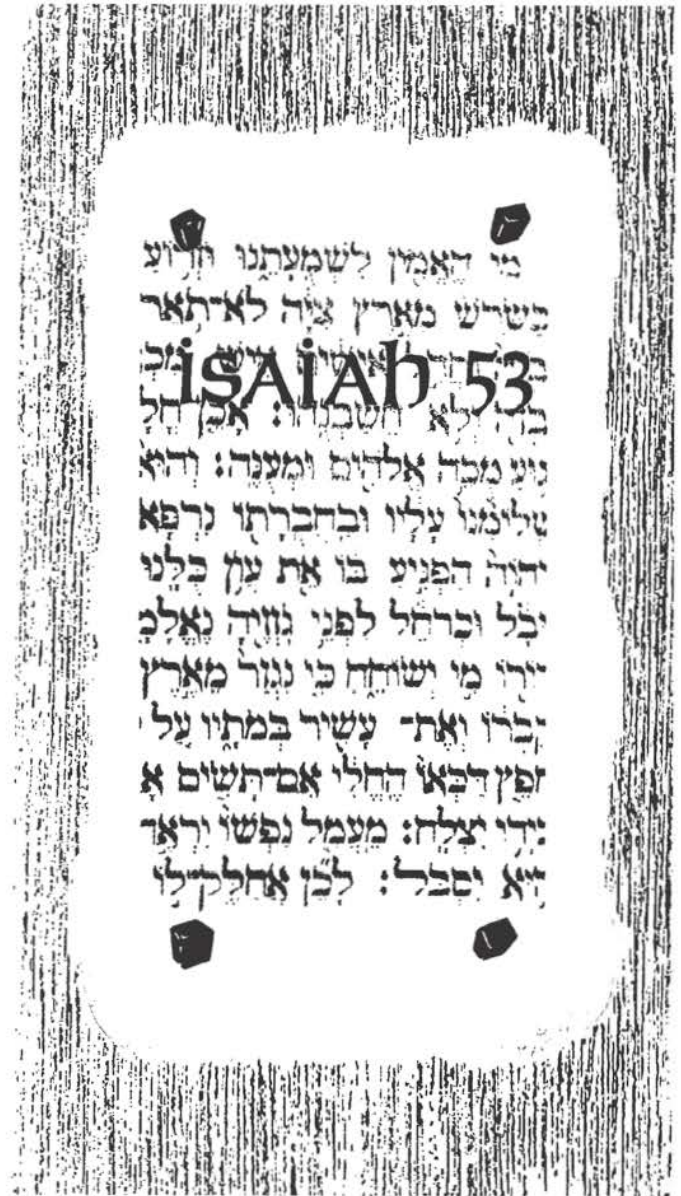 מִי הֶאֱמִין לִשְׁמֻעָתֵנוּ וּזְרוֹעַ
כַּשֹּׁרֶשׁ מֵאֶרֶץ צִיָּה לֹא־תֹאַר
isaiah 53
וְלֹא חֲשַׁבְנֻהוּ: אָכֵן חֳלָ
מֻכֵּה אֱלֹהִים וּמְעֻנֶּה: וְהוּא
עָלָיו וּבַחֲבֻרָתוֹ נִרְפָּא
יהוָה הִפְגִּיעַ בּוֹ אֵת עֲוֹן כֻּלָּנוּ
יוּבָל וּכְרָחֵל לִפְנֵי גֹזְזֶיהָ נֶאֱלָמָ
מִי יְשׂוֹחֵחַ כִּי נִגְזַר מֵאֶרֶץ
קִבְרוֹ וְאֶת־ עָשִׁיר בְּמֹתָיו עַל
חָפֵץ דַּכְּאוֹ הֶחֱלִי אִם־תָּשִׂים אָ
יִצְלָח: מֵעֲמַל נַפְשׁוֹ יִרְאֶה
הוּא יִסְבֹּל: לָכֵן אֲחַלֶּק־לוֹ